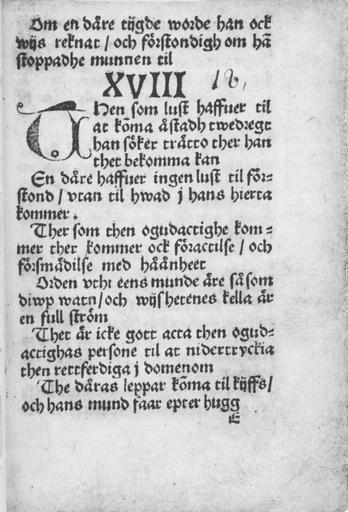 Om en dåre tijgde worde han ock
wijs reknat / och förstondigh om hã
stoppadhe munnen til
XVIII 18,
THen som lust haffuer til
at kõma åstadh twedregt
han söker trätto ther han
thet bekomma kan
En dåre haffuer ingen lust til för⸗
stond / vtan til hwad j hans hierta
kommer.
Ther som then ogudactighe kom⸗
mer ther kommer ock föractilse / och
försmädilse med håånheet
Orden vtht eens munde äre så som
diwp watn / och wijshetenes kella är
en full ström
Thet är icke gott acta then ogud⸗
actighas persone til at nidertryckia
then rettferdiga j domenom
The dåras leppar kõma til kijffs /
och hans mund faar epter hugg
E